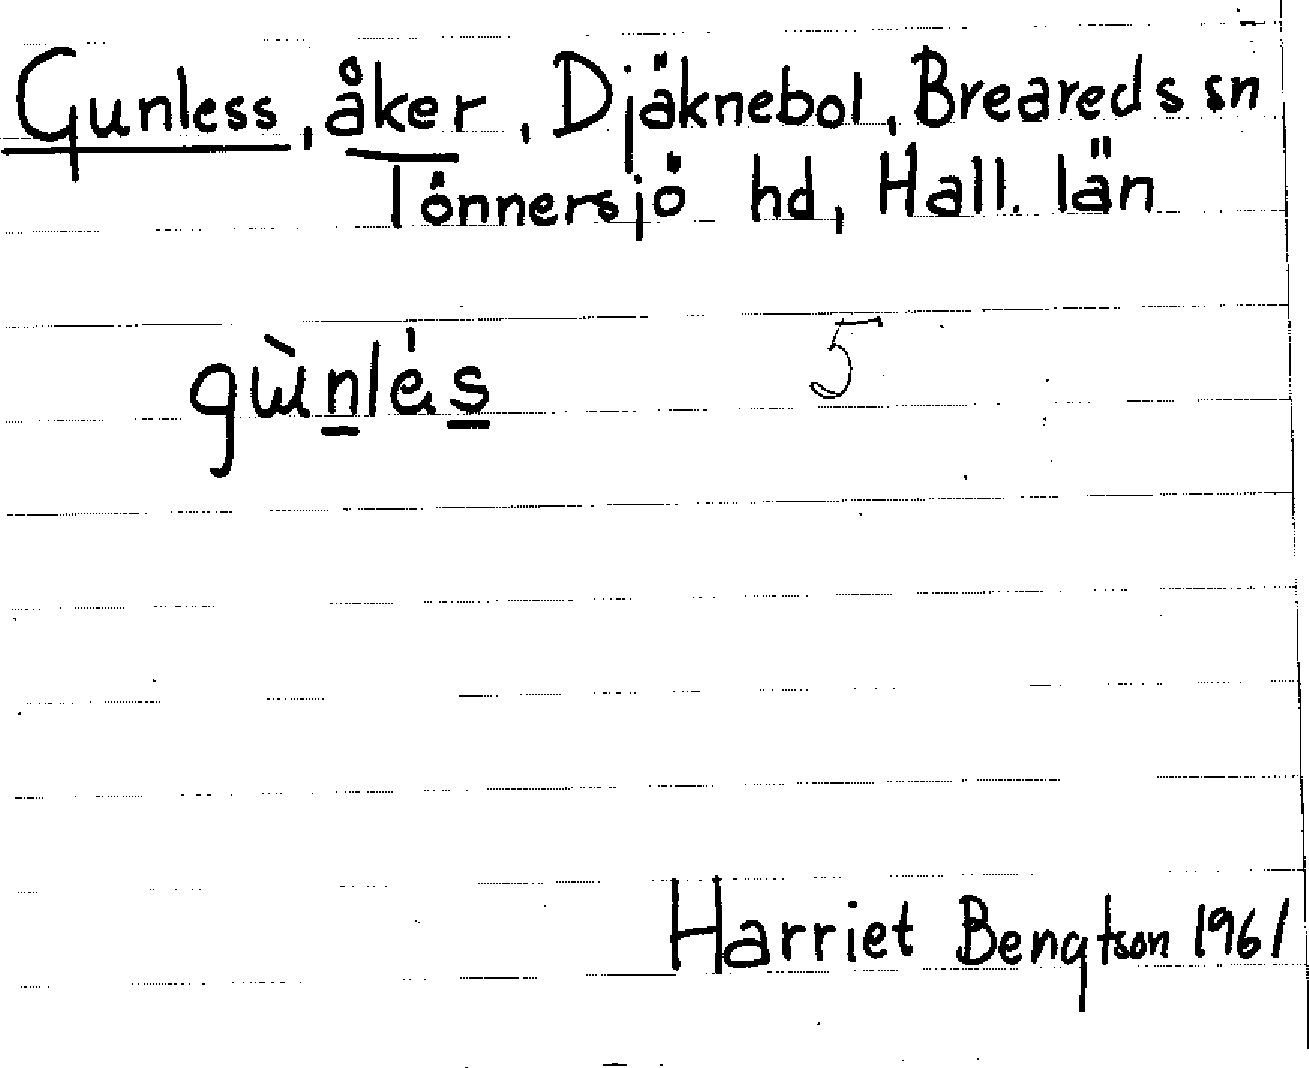 Gunless, åker, Djäknebol, Breareds sn
Tönnersjö hd, Hall. län
gɯ̀nlés 5
Harriet Bengtson 1961